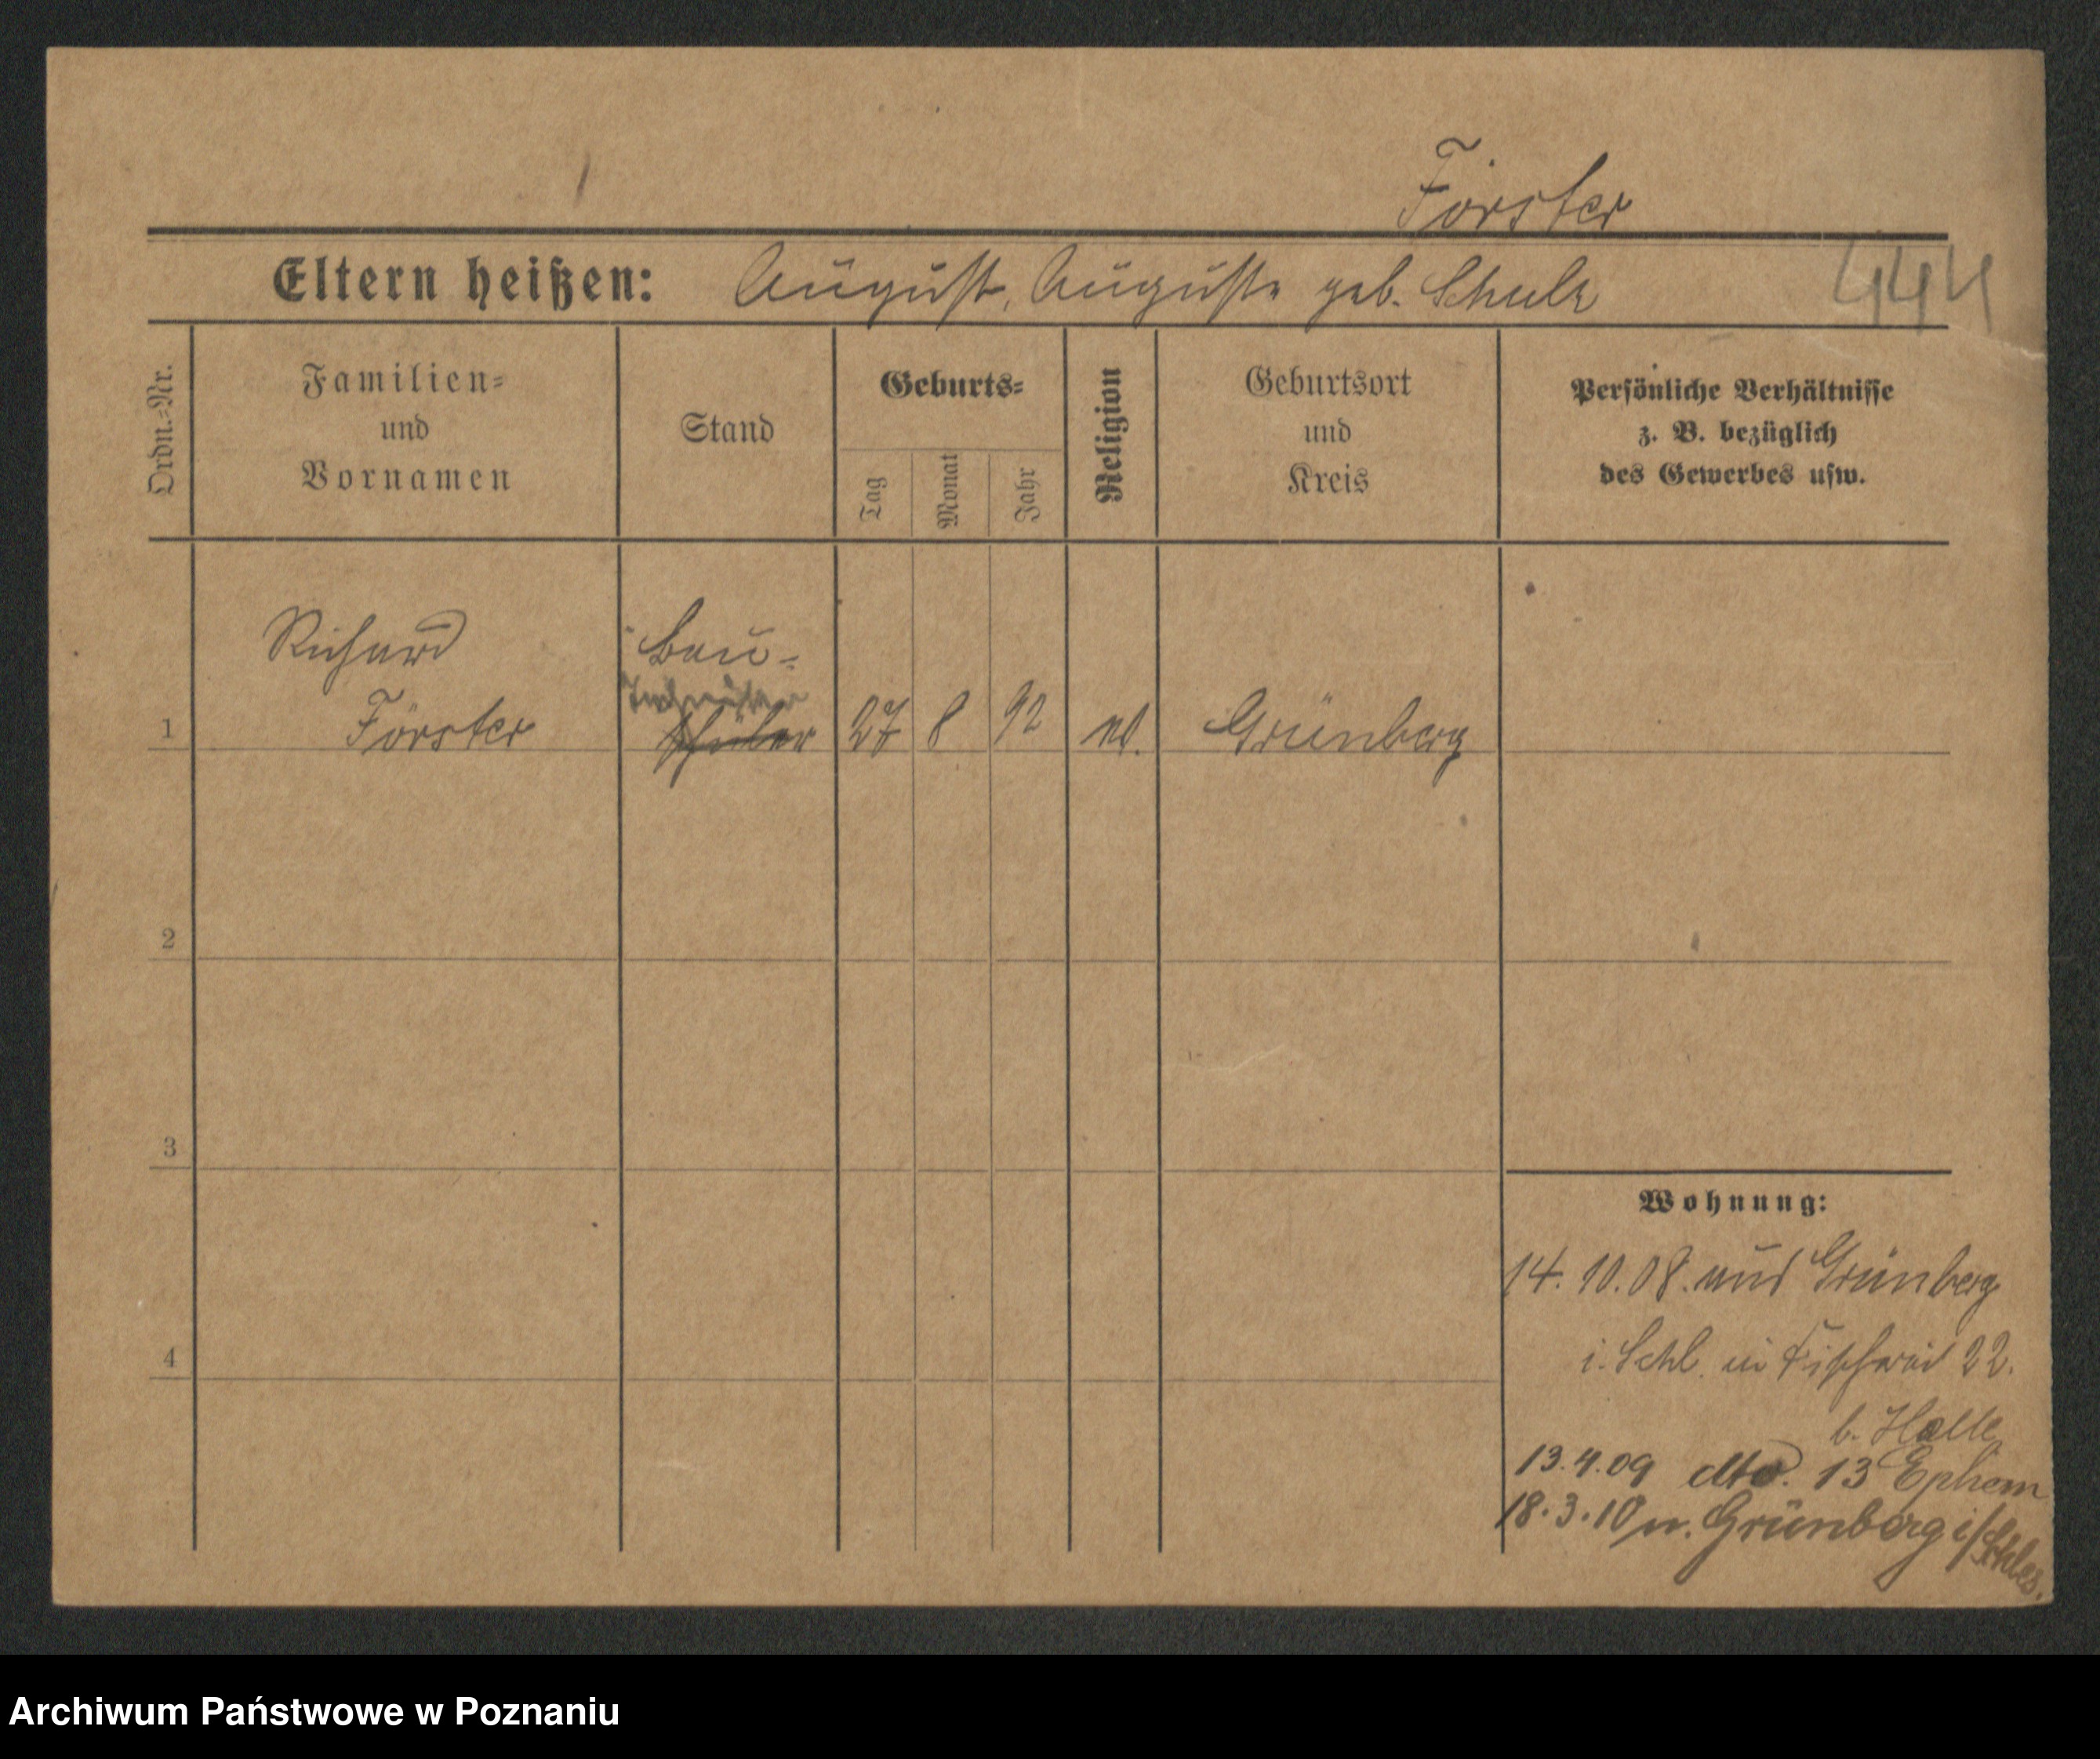 Förster
Eltern heißen: August, Auguste geb. Schulz
444
Ordn.=Nr.
Familien=
und
Vornamen
Stand
Geburts=
Tag
Monat
Jahr
Religion
Geburtsort
und
Kreis
Persönliche Verhältnisse
z. B. bezüglich
des Gewerbes usw.
Richard
Förster
Bau=
Techniker
schüler
1 27 8 92 Grünberg
2
3
4
Wohnung:
14. 10. 08. aus Grünberg
i. Schl. in 22.
b. Halle
13.4.09 dto. 13 Ephem
18.3.10 n. Grünberg i/Schles.
Archiwum Państwowe w Poznaniu